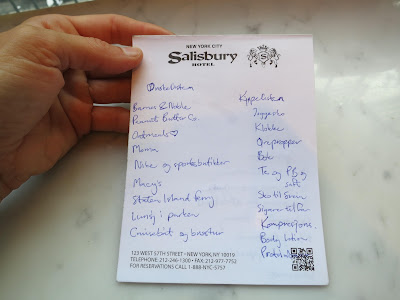 NEW YORK CITY
Salisbury
HOTEL
S
Ønskelisten
Barnes & Noble
Peanut Butter Co.
Oatmeals♡
Moma
Nike og sportsbutikker
Macy's
Staten Island ferry
Lunsj i parken
Cruisebåt og
Kjøpelisten
Joggesko
Klokke
Ørepropper
Bok
Te og PB og
saft
Sko til
til far
Kompresjons.
Body lotion
Protein
123 WEST 57TH STREET • NEW YORK, NY 10019
TELEPHONE 212-246-1300 • FAX 212-977-7752
FOR RESERVATIONS CALL 1-888-NYC-5757